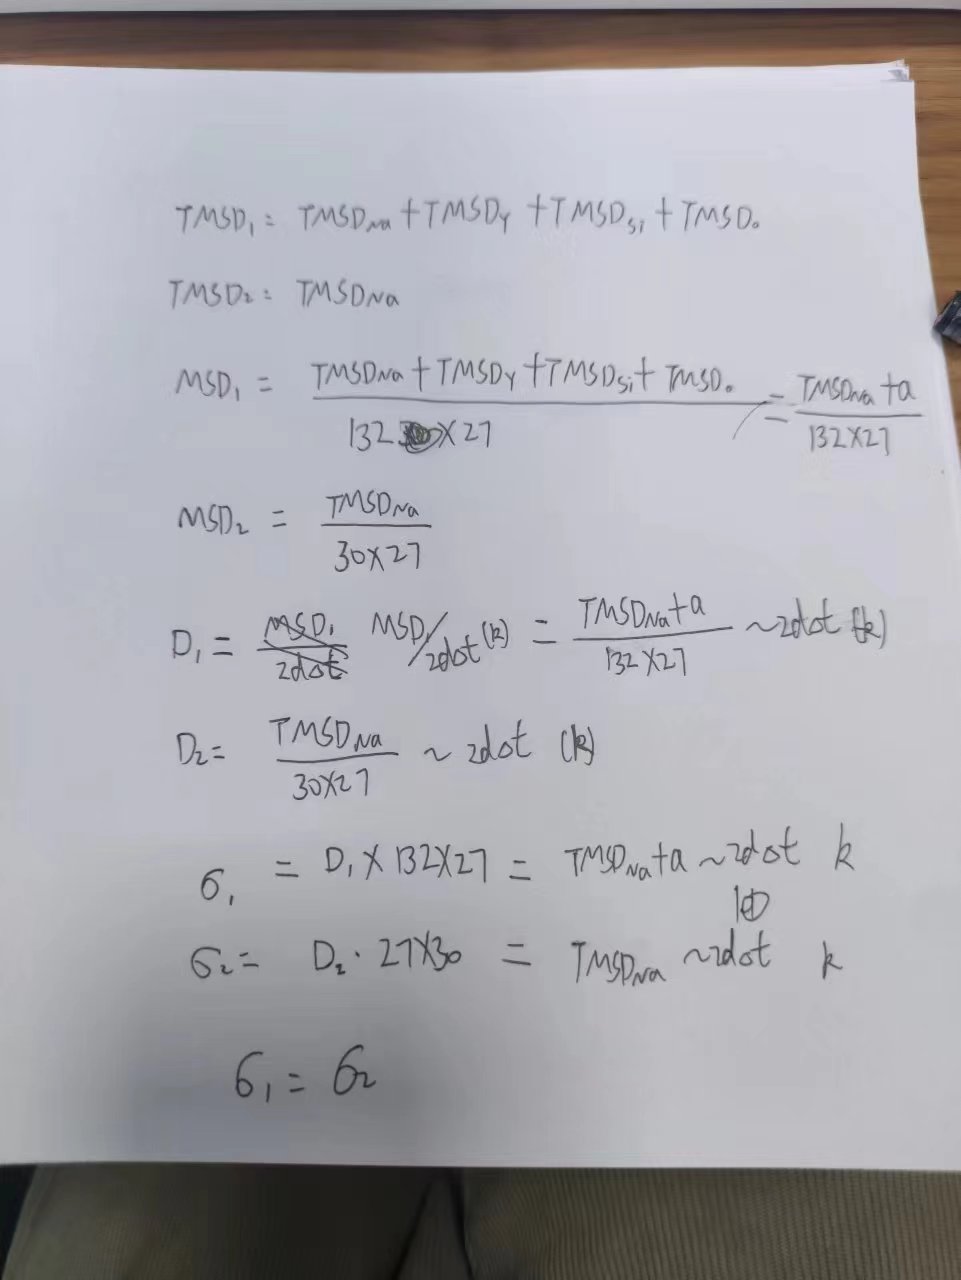 TMSD₁ = TMSD_Na + TMSD_Y + TMSD_Si + TMSD_o
TMSD₂ = TMSD_Na
MSD₁ = (TMSD_Na + TMSD_Y + TMSD_Si + TMSD_o) / (132 × 27) = (TMSD_Na + a) / (132×27)
MSD₂ = TMSD_Na / (30×27)
D₁ = MSD/2dot (k) = (TMSD_Na + a) / (132×27) ~ 2dot (k)
D₂ = TMSD_Na / (30×27) ~ 2dot (k)
σ₁ = D₁ × 132×27 = TMSD_Na + a ~ 2dot k
σ₂ = D₂ · 27×30 = TMSD_Na ~ 2dot k
σ₁ = σ₂